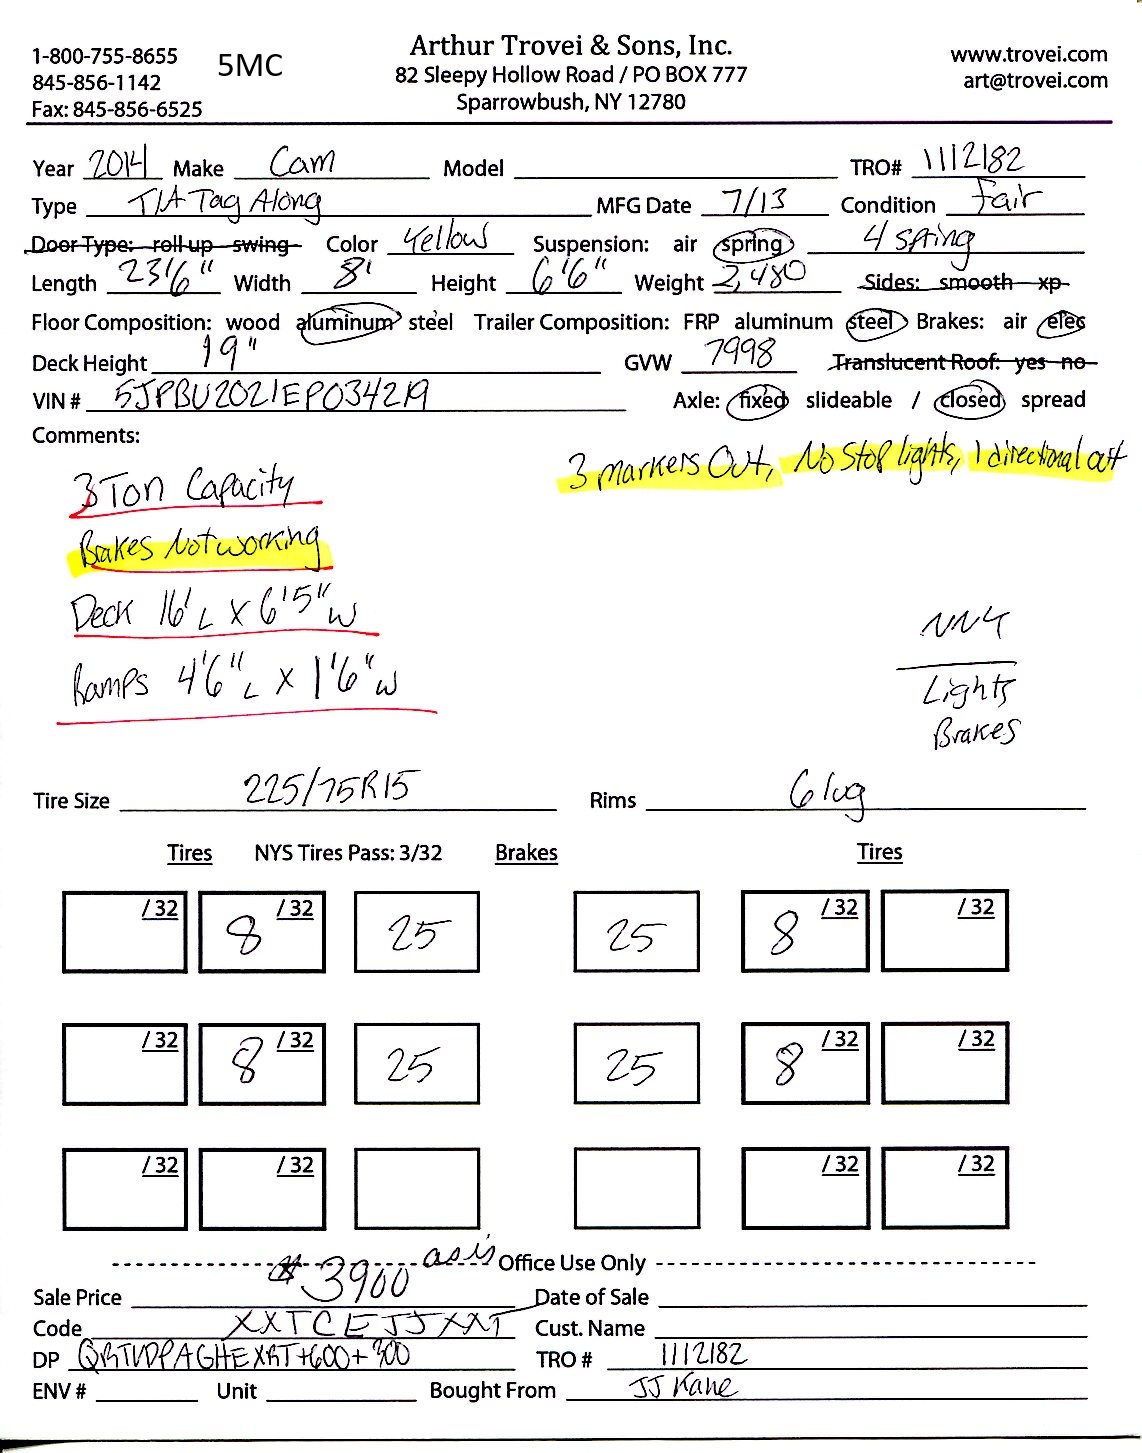 1-800-755-8655
845-856-1142
Fax: 845-856-6525
5MC
Arthur Trovei & Sons, Inc.
82 Sleepy Hollow Road / PO BOX 777
Sparrowbush, NY 12780
www.trovei.com
art@trovei.com
Year 2014 Make Cam Model TRO# 1112182
Type T/A Tag Along MFG Date 7/13 Condition fair
Door Type: roll up swing Color Yellow Suspension: air spring 4 spring
Length 23'6" Width 8' Height 6'6" Weight 2,480 Sides: smooth xp
Floor Composition: wood aluminum steel Trailer Composition: FRP aluminum steel Brakes: air elec
Deck Height 19" GVW 7998 Translucent Roof: yes no
VIN # 5JPBU2021EP034219 Axle: fixed slideable / closed spread
Comments:
3 markers Out, No Stop lights, 1 directional out
3 Ton Capacity
Brakes Not working
Deck 16' L X 6'5" W
Ramps 4'6" L X 1'6" W
NNY
Lights
Brakes
Tire Size 225/75R15 Rims 6 lug
Tires NYS Tires Pass: 3/32 Brakes Tires
/32 8 /32 25 25 8 /32 /32
/32 8 /32 25 25 8 /32 /32
/32 /32 /32 /32
as is Office Use Only
Sale Price $3900 Date of Sale
Code XXTCEJJXXT Cust. Name
DP +600+300 TRO # 1112182
ENV # Unit Bought From JJ Kane